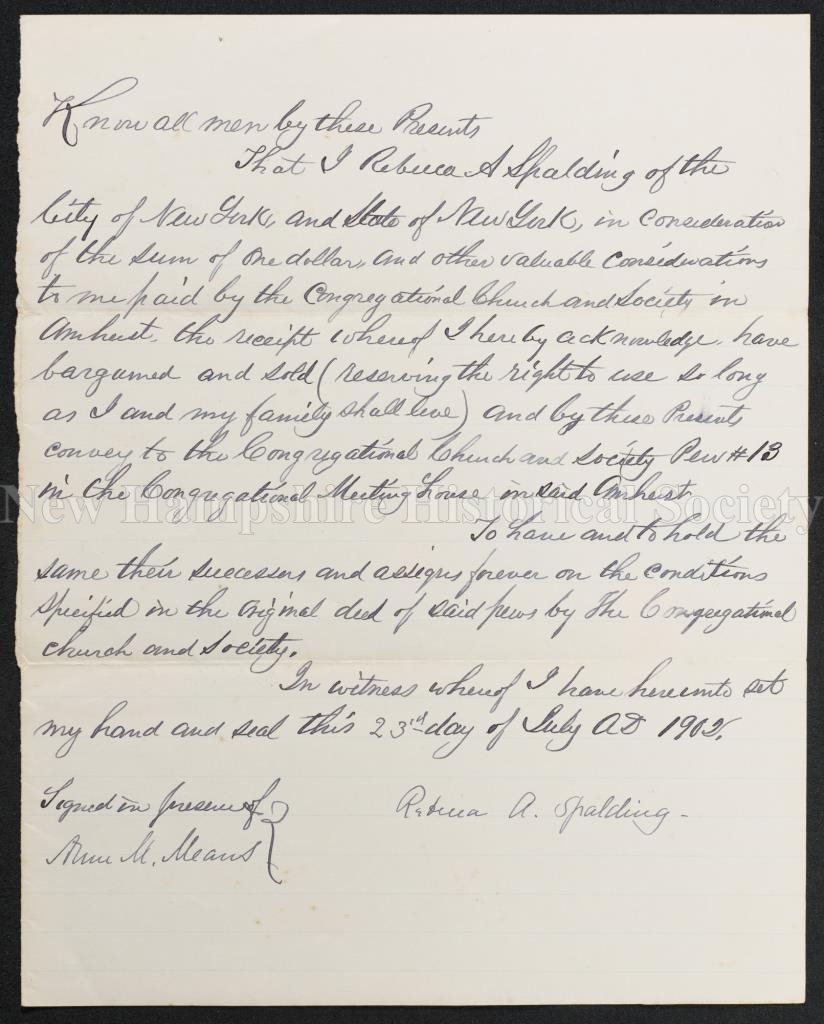 Know all men by these Presents
That I Rebecca A Spalding of the
City of New York, and State of New York, in consideration
of the sum of one dollar, and other valuable considerations
to me paid by the Congregational Church and Society in
Amherst, the receipt whereof I hereby acknowledge, have
bargained and sold (reserving the right to use so long
as I and my family shall live) and by these Presents
convey to the Congregational Church and Society Pew #13
in the Congregational Meeting house in said Amherst
New Hampshire Historical Society
To have and to hold the
same their successors and assigns forever on the conditions
specified in the original deed of said pews by The Congregational
church and society.
In witness whereof I have hereunto set
my hand and seal this 23rd day of July AD 1902.
Signed in presence of
Rebecca A. Spalding -
Anne M. Means